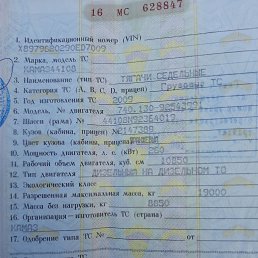 16 МС 628847
1. Идентификационный номер (VIN)
X89796B0290ED7009
2. Марка, модель ТС
КАМАЗ44108
3. Наименование (тип ТС) ТЯГАЧИ СЕДЕЛЬНЫЕ
4. Категория ТС (A, B, C, D, прицеп) Грузовые ТС
5. Год изготовления ТС 2009
6. Модель, № двигателя 740.130
7. Шасси (рама) № 44108M92364019
8. Кузов (кабина, прицеп) №2147389
9. Цвет кузова (кабины, прицепа)
10. Мощность двигателя, л. с. (кВт) 260
11. Рабочий объем двигателя, куб. см 10850
12. Тип двигателя ДИЗЕЛЬНЫЙ НА ДИЗЕЛЬНОМ ТО
13. Экологический класс
14. Разрешенная максимальная масса, кг 19000
15. Масса без нагрузки, кг 8850
16. Организация – изготовитель ТС (страна)
КАМАЗ
17. Одобрение типа ТС №